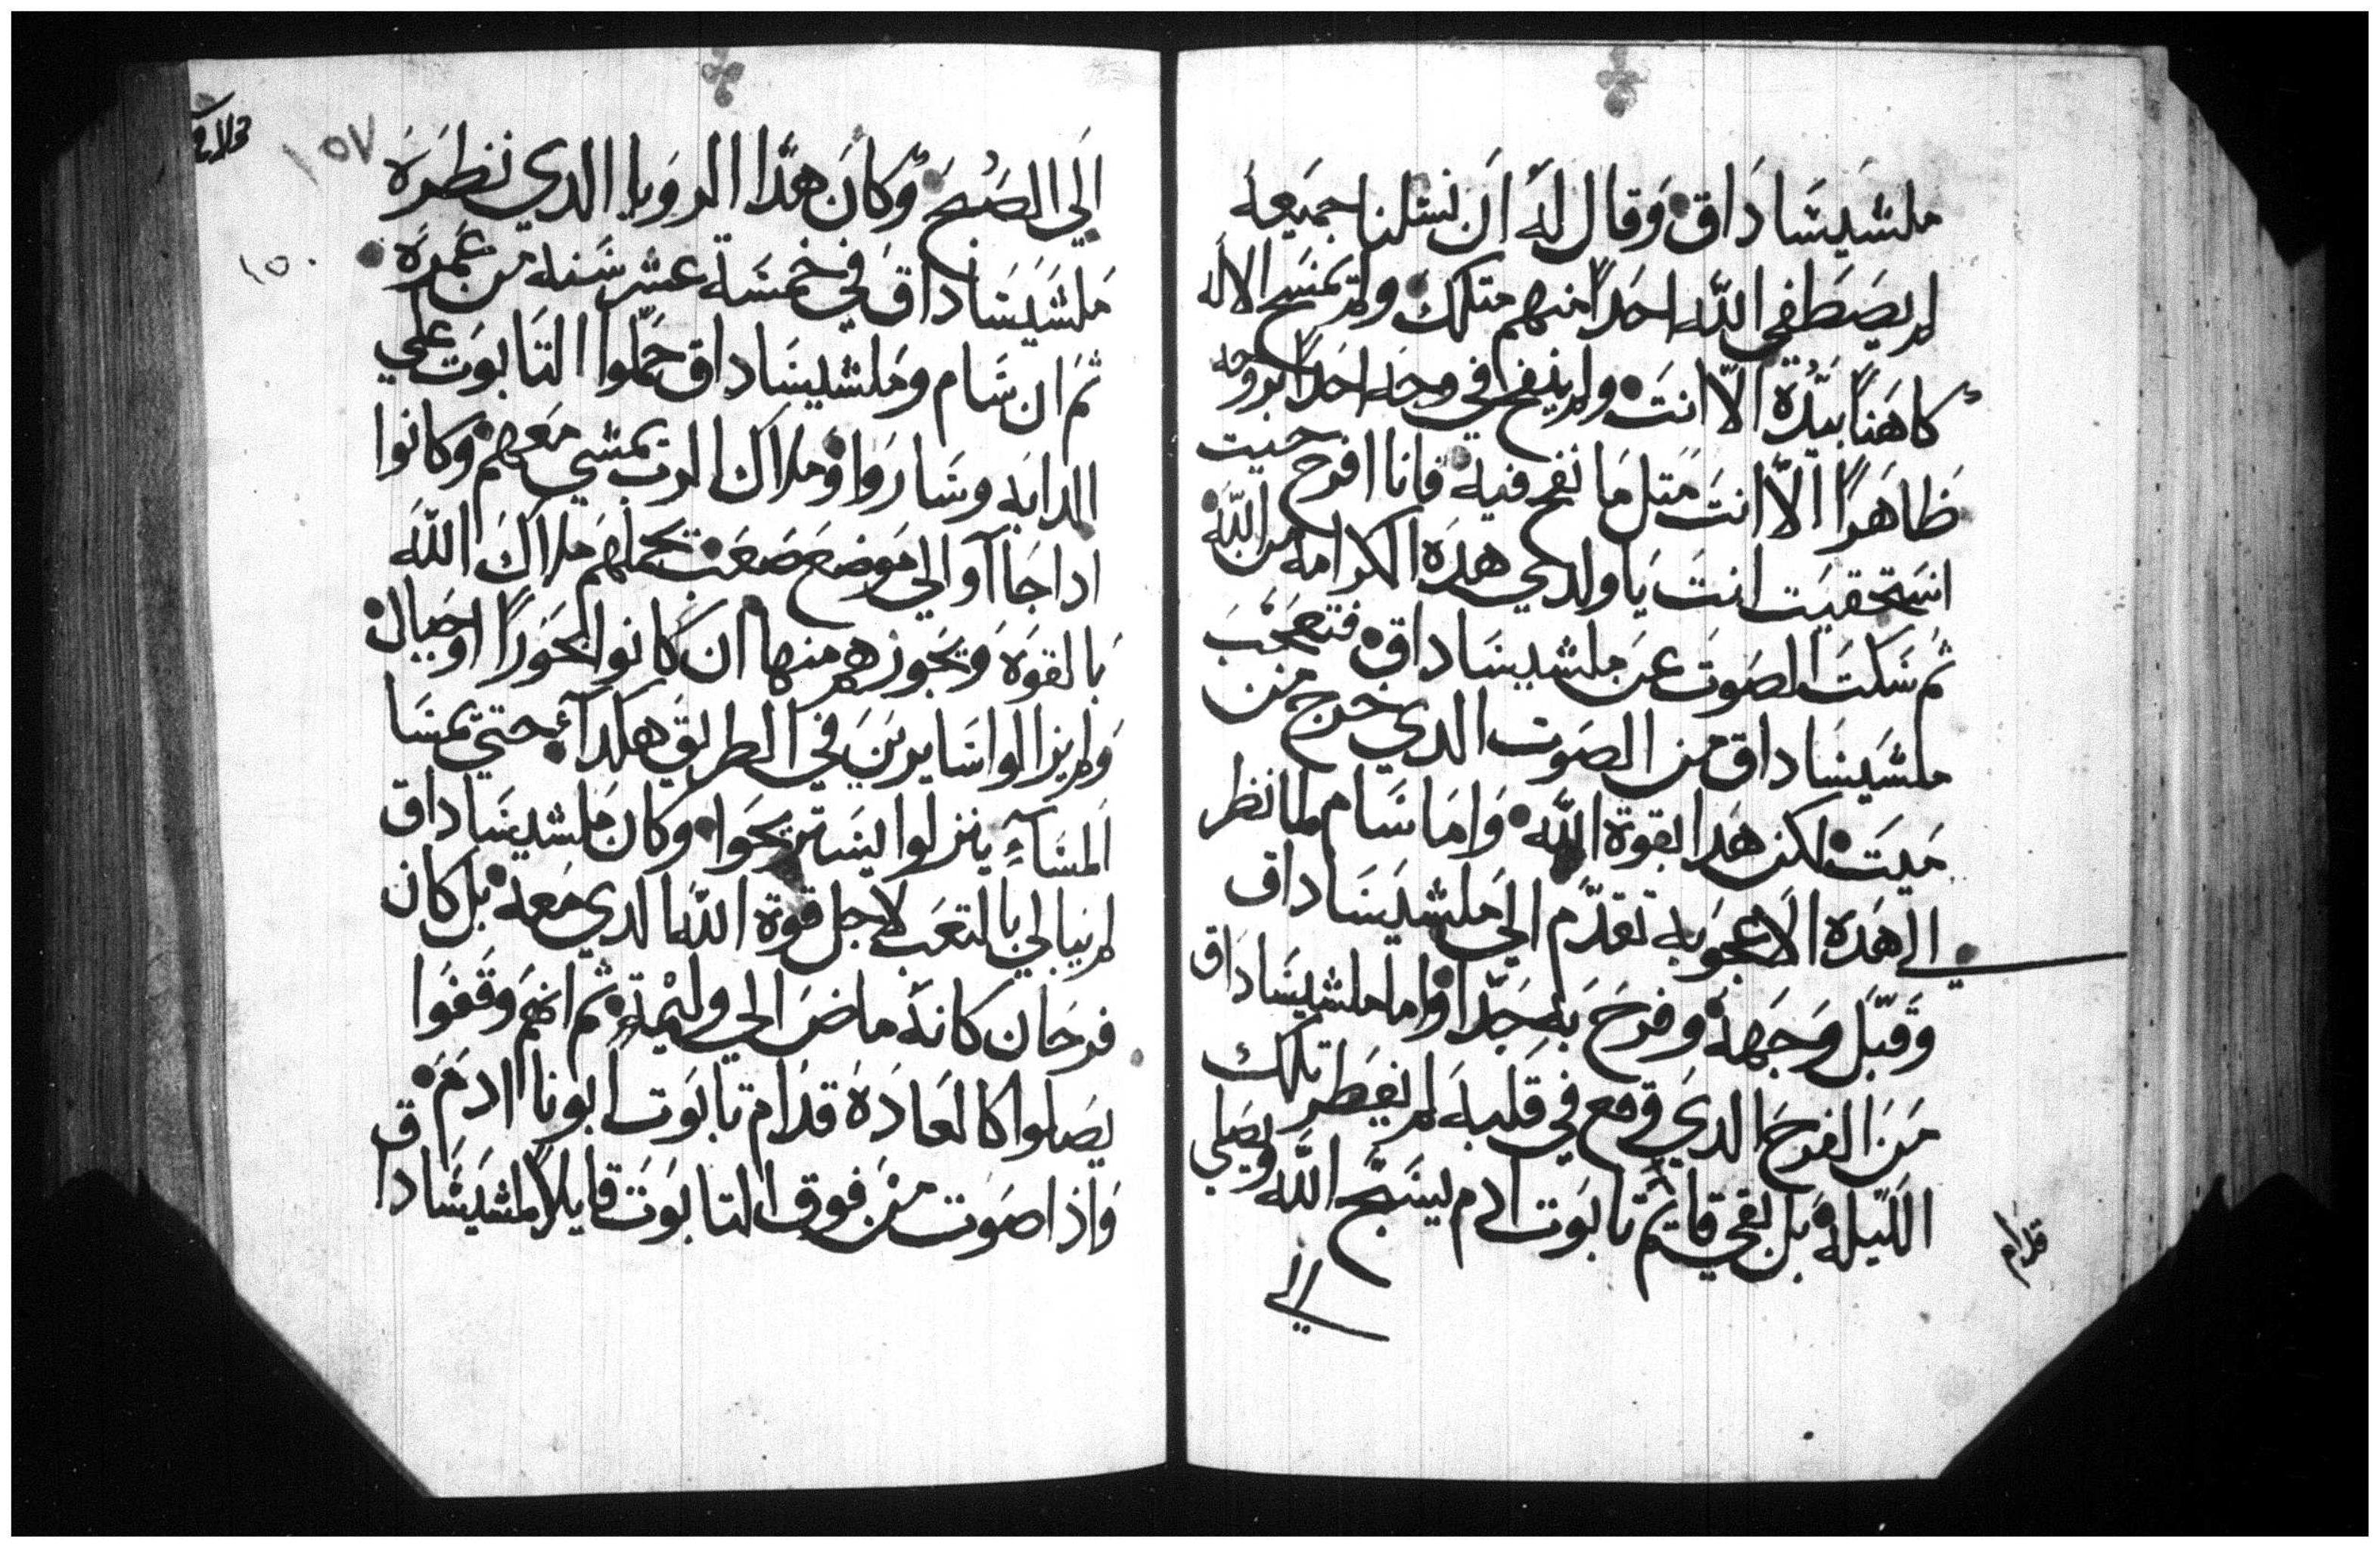 ملشيساداق وقال له ان نسلنا جميعه
لم يصطفي الله احدا منهم متلك ولم يمسح الاله
كاهنا بيده الا انت ولم ينفخ في وجه احدا بروحه
ظاهرا الا انت متل ما نفخ فيه فانا افرح حيت
استحقيت انت يا ولدي هده الكرامه من الله
ثم سكت الصوت عن ملشيساداق فتعجب
ملشيساداق من الصوت الدي خرج من
ميت لكن هدا بقوة الله واما سام لما نظر
الى هده الاعجوبه تقدم الي ملشيساداق
وقبل وجهه وفرح به جدا واما ملشيساداق
من الفرح الدي وقع في قلبه لم يفطر تلك
الليله بل بقي قايم تابوت ادم يسبح الله ويصلي
قدام
الي
١٥٧
١٥٠
الي الصبح وكان هدا الرويا الدي نظره
ملشيساداق في خمسة عشر سنه من عمره
ثم ان سام وملشيساداق حملوا التابوت علي
الدابه وساروا وملاك الرب يمشي معهم وكانوا
ادا جاآوا الي موضع صعب يحملهم ملاك الله
بالقوه ويجوزهم منها ان كانوا بحورا او جبال
ولم يزالوا سايرين في الطريق هكدا حتي يمسا
المسآء ينزلوا يستريحوا وكان ملشيساداق
لم يبالي بالتعب لاجل قوة الله الدي معه بل كان
فرحان كانه ماض الي وليمة ثم انهم وقفوا
يصلوا كالعاده قدام تابوت ابونا ادم
واذا صوت من فوق التابوت قايلا ملشيساداق